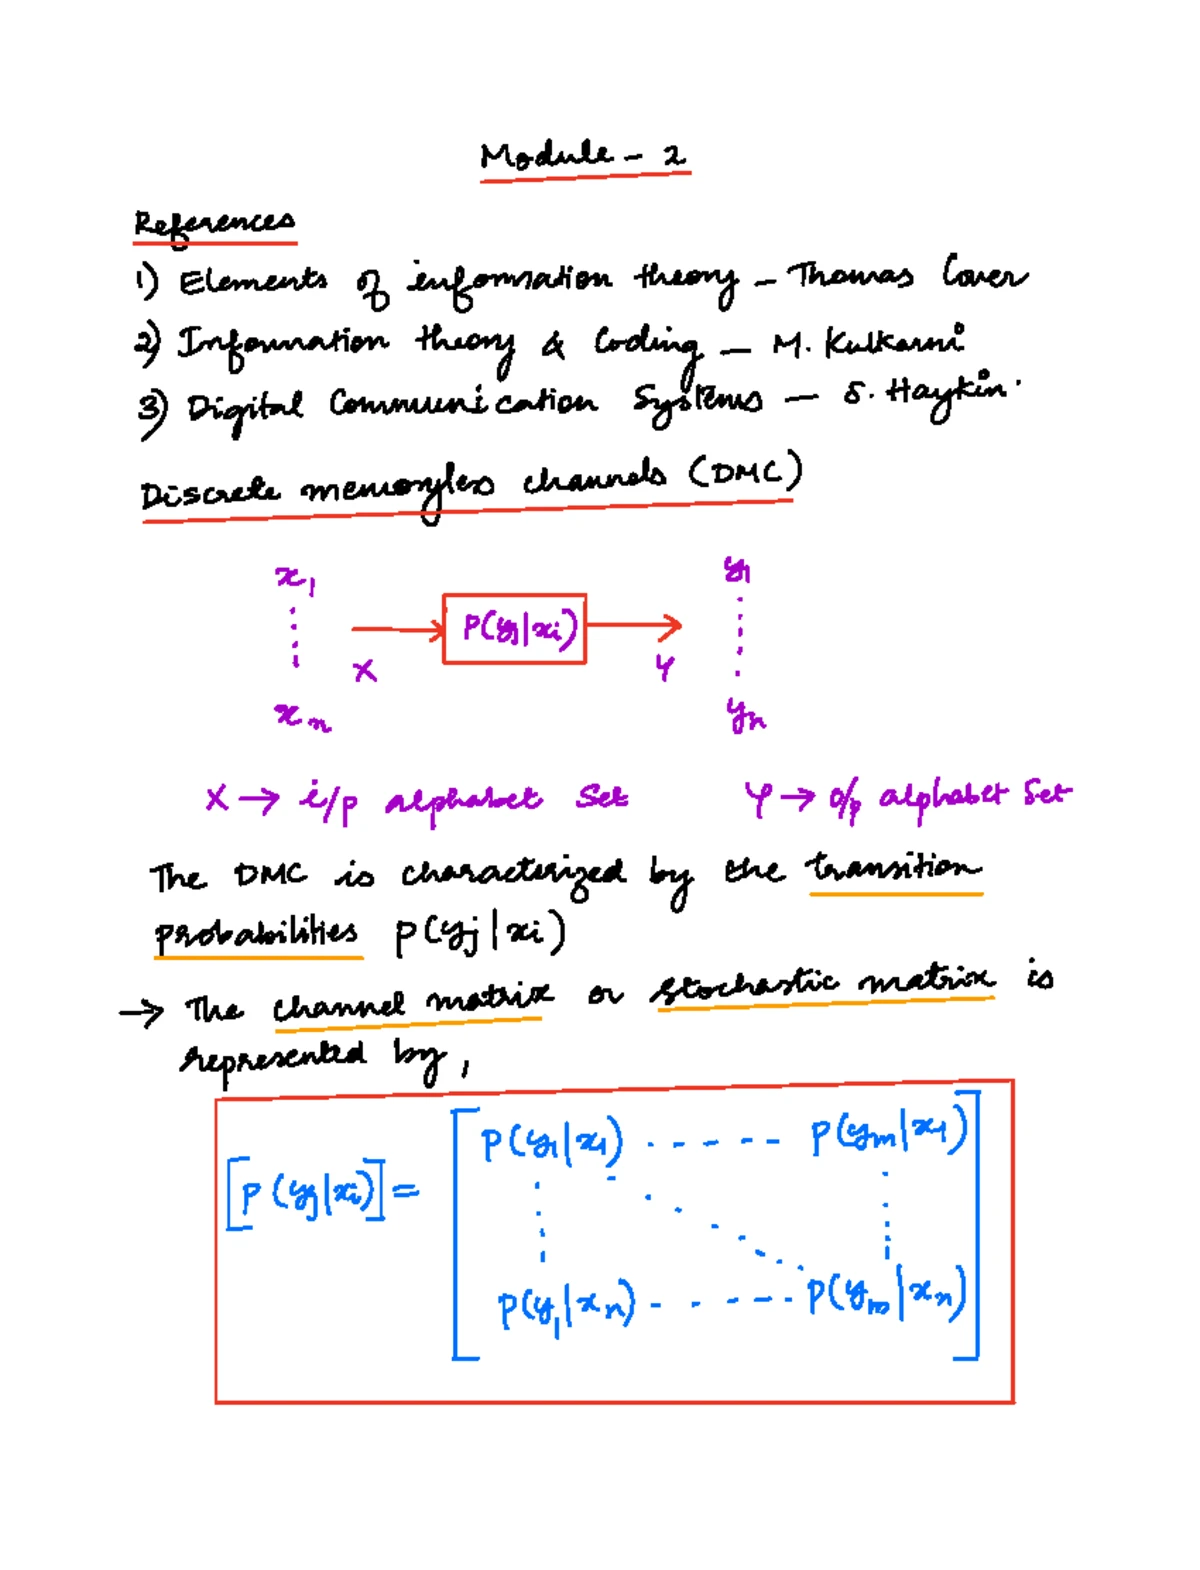 Module - 2
References
1) Elements of information theory - Thomas Cover
2) Information theory & Coding - M. Kulkarni
3) Digital Communication Systems - S. Haykin.
Discrete memoryless channels (DMC)
x1 y1
P(yj|xi)
X Y
xn yn
X → i/p alphabet Set Y → o/p alphabet Set
The DMC is characterized by the transition
probabilities P(yj|xi)
→ The channel matrix or stochastic matrix is
represented by,
P(y1|x1) ----- P(ym|x1)
[P(yj|xi)] =
P(y1|xn) - - --- P(ym|xn)